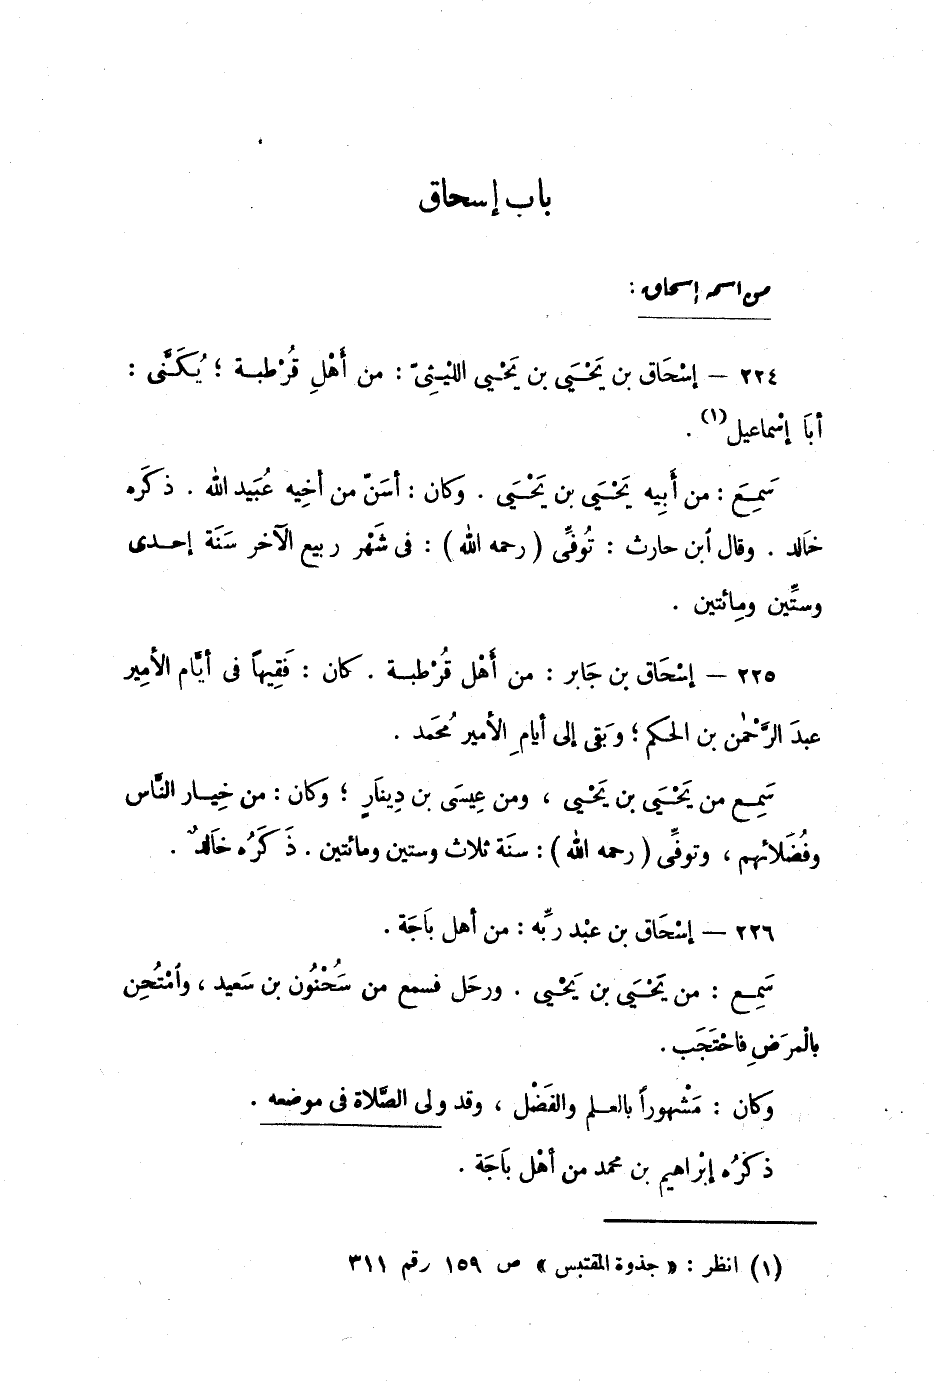 باب إسحاق
من اسمه إسحاق :
٢٢٤ — إسْحَاق بن يَحْيَى بن يَحْيى الليْثِىّ : من أَهْلِ قُرْطبة ؛ يُكَنَّى :
أبَا إسْماعيل(١) .
سَمِعَ : من أَبِيه يَحْيَى بن يَحْيَى . وكان : أسَنّ من أخِيه عُبَيد الله . ذكَره
خَالد . وقال ٱبن حارث : تُوفِّى ( رحمه الله ) : فى شَهْر ربيع الآخر سَنَة إحدى
وستِّين ومِائتين .
٢٢٥ — إسْحَاق بن جَابر : من أَهْل قُرْطبة . كان : فَقِيهاً فى أيَّام الأمِير
عبدَ الرَّحْمٰن بن الحكم ؛ وبَقى إلى أيامِ الأمير مُحَمَد .
سَمِع من يَحْيَى بن يَحْيى ، ومن عِيسَى بن دِينَارٍ ؛ وكان : من خِيار النَّاس
وفُضَلائهم ، وتوفِّى ( رحمه الله ) : سنَة ثلاث وستين ومائتين . ذَكَرُه خَالدٌ .
٢٢٦ — إسْحَاق بن عبْد ربِّه : من أهل بَاجَة .
سَمِع : من يَحْيَى بن يَحْيى . ورحَل فسمع من سَحُنُون بن سَعيد ، وٱمْتُحِن
بالْمرَضِ فاحْتَجَب .
وكان : مَشْهوراً بالعلم والفَضْل ، وقد ولى الصَّلاة فى موضعه .
ذكرُه إبْراهيم بن محمد من أهْل بَاجَة .
(١) انظر : « جذوة المقتبس » ص ١٥٩ رقم ٣١١